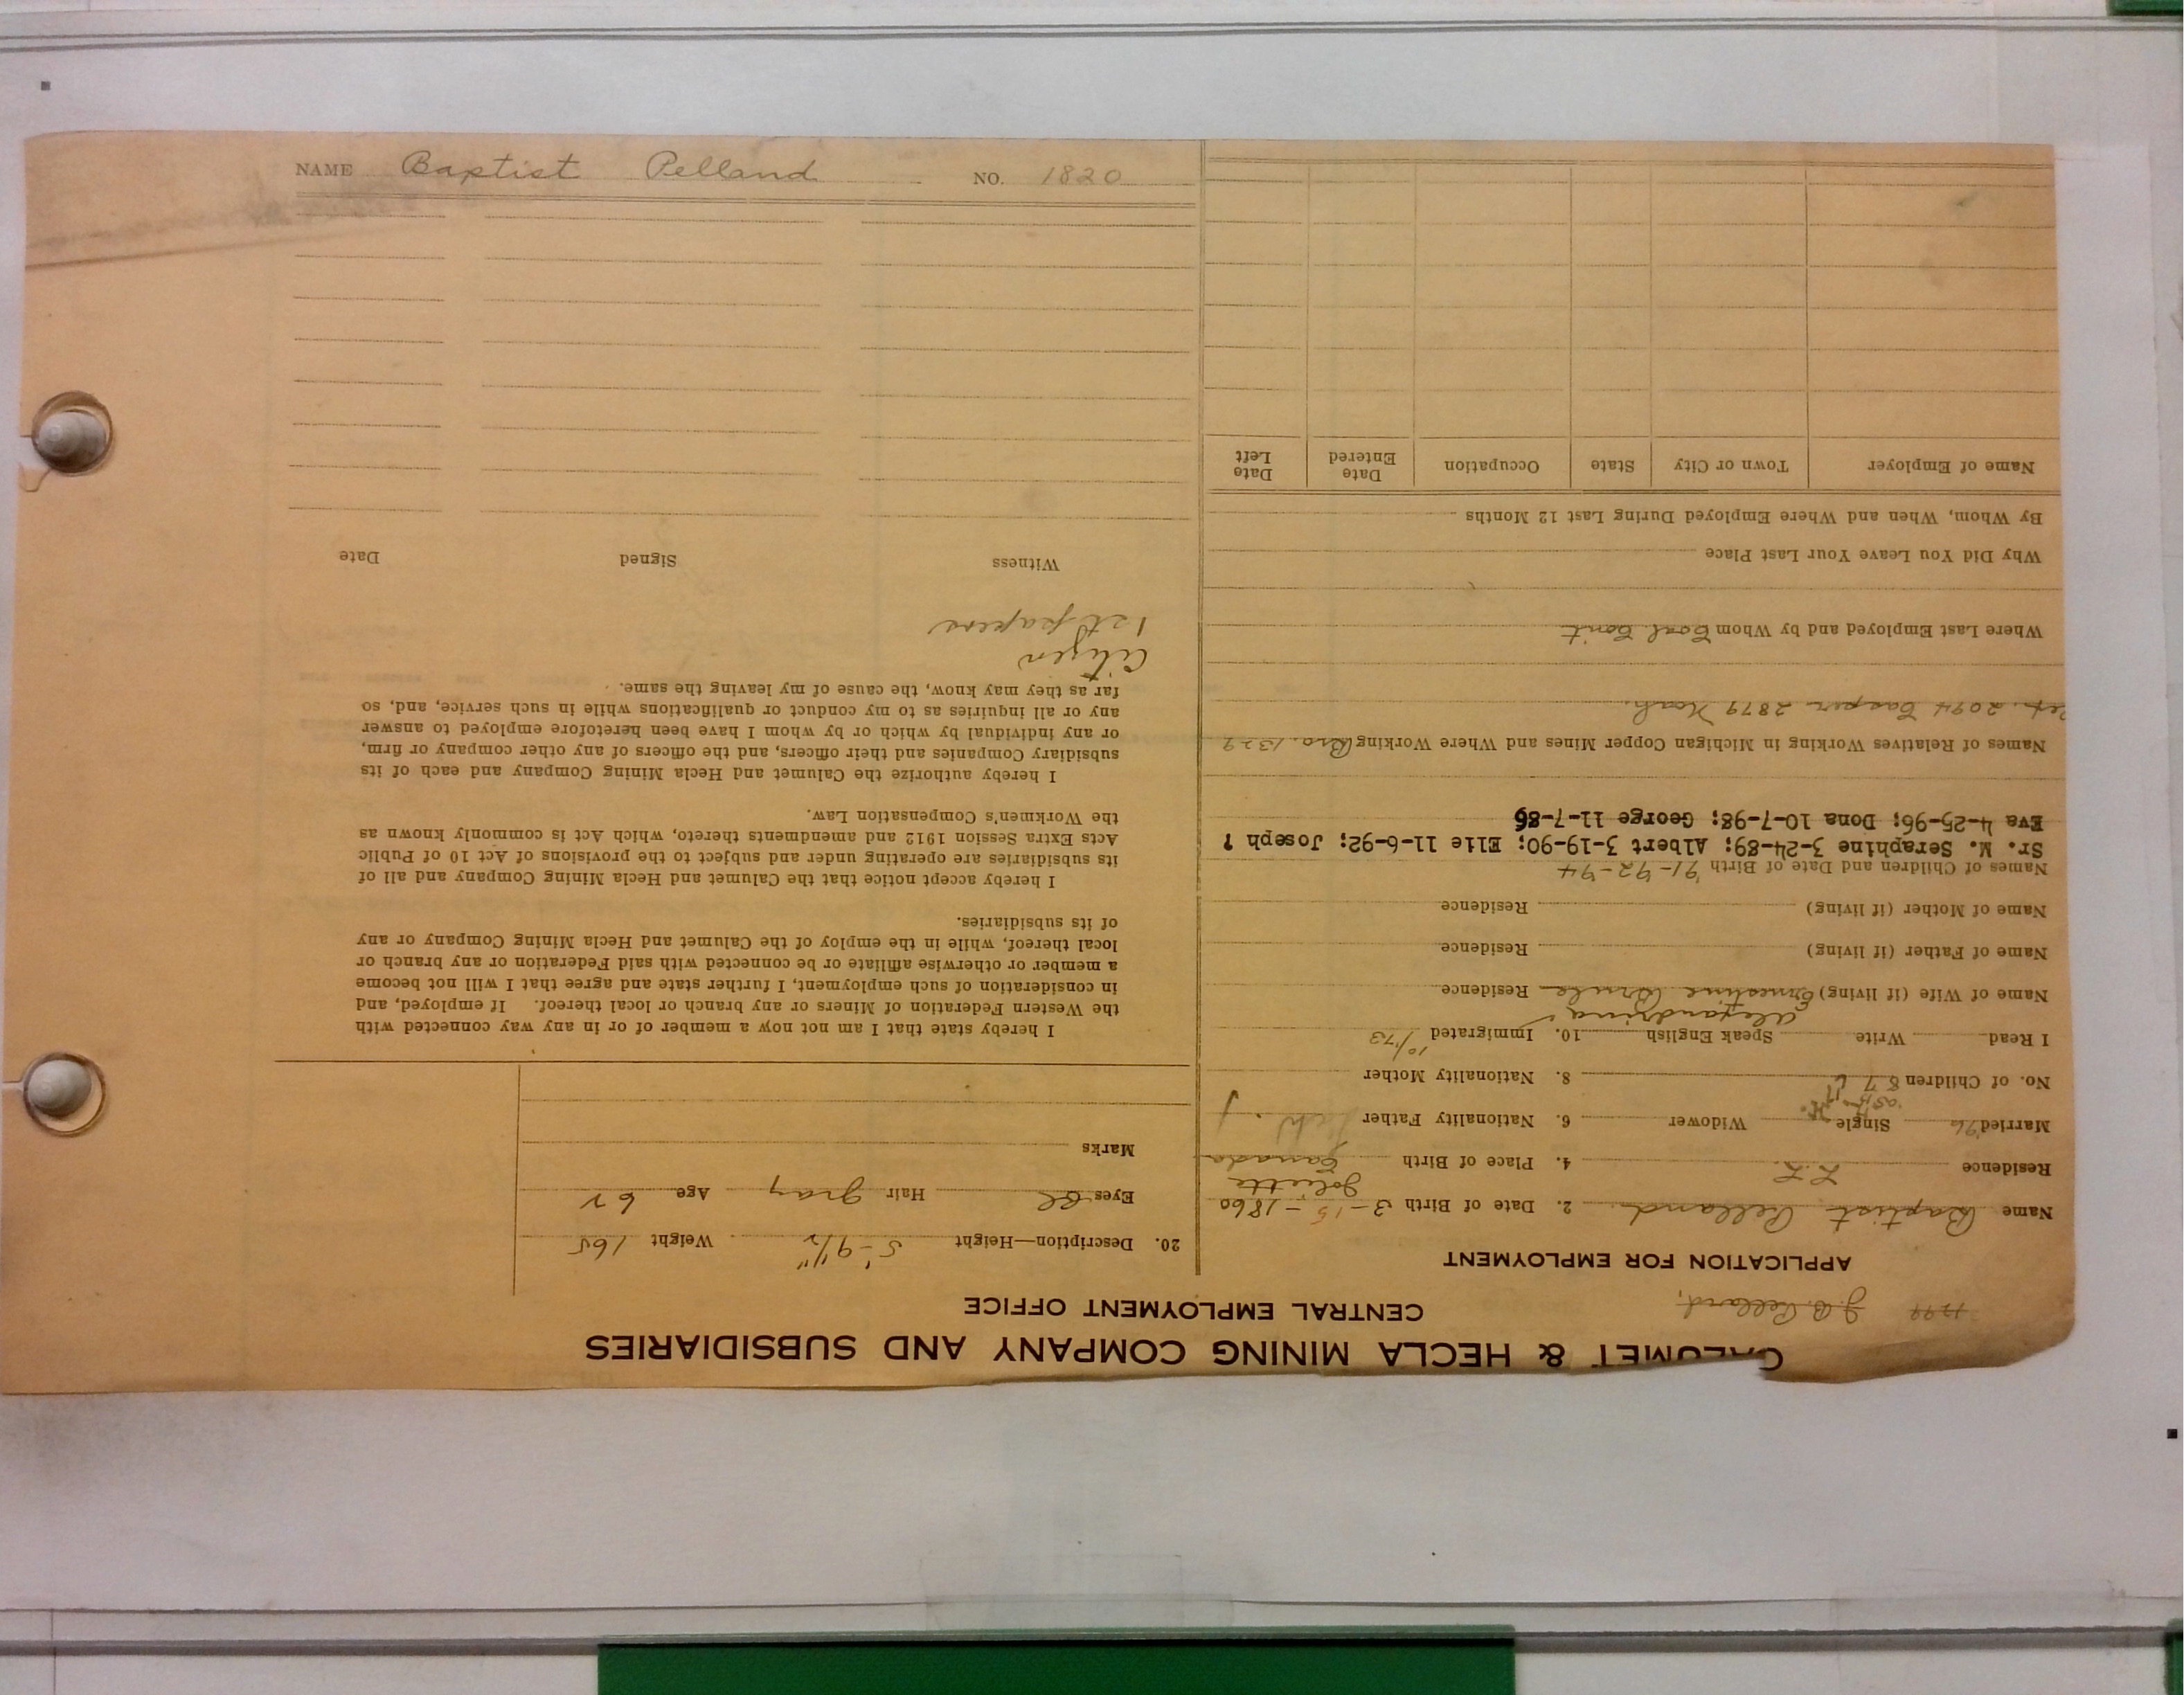 NAME Baptist Pelland NO. 1820
CALUMET & HECLA MINING COMPANY AND SUBSIDIARIES
CENTRAL EMPLOYMENT OFFICE
J. B. Pelland,
APPLICATION FOR EMPLOYMENT
Name Baptist Pelland 2. Date of Birth 3-15-1860
Joliette
Residence L.L. 4. Place of Birth Canada
Married '96 Single Widower 6. Nationality Father
No. of Children 8 7 8. Nationality Mother
I Read Write Speak English 10. Immigrated 10/73
Alexandrina
Name of Wife (if living) Ernestine Brule Residence
Name of Father (if living) Residence
Name of Mother (if living) Residence
Names of Children and Date of Birth '91-'92-'94
Sr. M. Seraphine 3-24-89; Albert 3-19-90; Elie 11-6-92; Joseph ?
Eva 4-25-96; Dona 10-7-98; George 11-7-86
Names of Relatives Working in Michigan Copper Mines and Where Working Bro. 1329
2094 Casper 2879 Noah.
Where Last Employed and by Whom Coal Cont.
Why Did You Leave Your Last Place
By Whom, When and Where Employed During Last 12 Months
Name of Employer Town or City State Occupation Date Entered Date Left
20. Description—Height 5'-9½" Weight 165
Eyes Bl Hair Gray Age 62
Marks
I hereby state that I am not now a member of or in any way connected with
the Western Federation of Miners or any branch or local thereof. If employed, and
in consideration of such employment, I further state and agree that I will not become
a member or otherwise affiliate or be connected with said Federation or any branch or
local thereof, while in the employ of the Calumet and Hecla Mining Company or any
of its subsidiaries.
I hereby accept notice that the Calumet and Hecla Mining Company and all of
its subsidiaries are operating under and subject to the provisions of Act 10 of Public
Acts Extra Session 1912 and amendments thereto, which Act is commonly known as
the Workmen's Compensation Law.
I hereby authorize the Calumet and Hecla Mining Company and each of its
subsidiary Companies and their officers, and the officers of any other company or firm,
or any individual by which or by whom I have been heretofore employed to answer
any or all inquiries as to my conduct or qualifications while in such service, and, so
far as they may know, the cause of my leaving the same.
Citizen
1st papers
Witness Signed Date